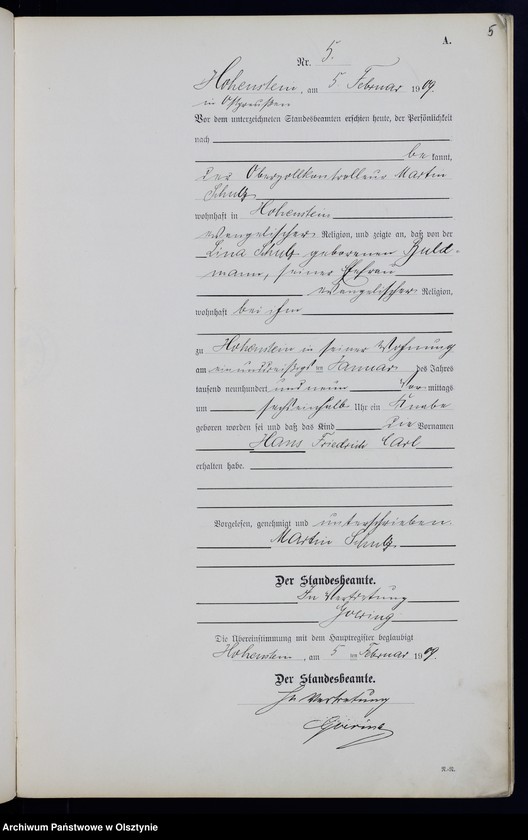 5
A.
Nr. 5.
Hohenstein, am 5. Februar 1909.
in Ostpreußen
Vor dem unterzeichneten Standesbeamten erschien heute, der Persönlichkeit
nach
be kannt,
der Oberzollkontrolleur Martin
Schulz
wohnhaft in Hohenstein
evangelischer Religion, und zeigte an, daß von der
Lina Schulz geborenen Buld-
mann, seiner Ehefrau
evangelischer Religion,
wohnhaft bei ihm
zu Hohenstein in seiner Wohnung
am einunddreißigsten Januar des Jahres
tausend neunhundert und neun Vor mittags
um sechseinhalb Uhr ein Knabe
geboren worden sei und daß das Kind die Vornamen
Hans Friedrich Carl
erhalten habe.
Vorgelesen, genehmigt und unterschrieben
Martin Schulz
Der Standesbeamte.
In Vertretung
Goering
Die Übereinstimmung mit dem Hauptregister beglaubigt
Hohenstein, am 5 ten Februar 1909.
Der Standesbeamte.
In Vertretung
Goering
Archiwum Państwowe w Olsztynie